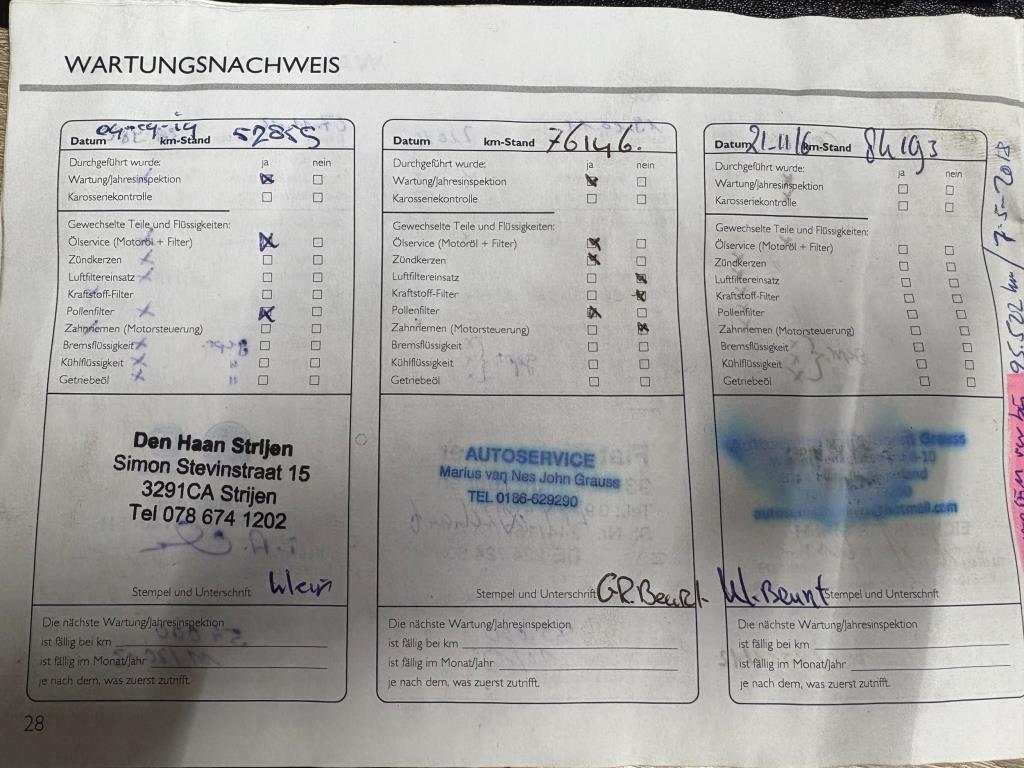 WARTUNGSNACHWEIS
Datum km-Stand 52855
Durchgeführt wurde: ja nein
Wartung/Jahresinspektion
Karosseriekontrolle
Gewechselte Teile und Flüssigkeiten:
Ölservice (Motoröl + Filter)
Zündkerzen
Luftfiltereinsatz
Kraftstoff-Filter
Pollenfilter
Zahnriemen (Motorsteuerung)
Bremsflüssigkeit
Kühlflüssigkeit
Getriebeöl
Den Haan Strijen
Simon Stevinstraat 15
3291CA Strijen
Tel 078 674 1202
Stempel und Unterschrift
Die nächste Wartung/Jahresinspektion
ist fällig bei km
ist fällig im Monat/Jahr
je nach dem, was zuerst zutrifft.
Datum km-Stand 76146.
Durchgeführt wurde: ja nein
Wartung/Jahresinspektion
Karosseriekontrolle
Gewechselte Teile und Flüssigkeiten:
Ölservice (Motoröl + Filter)
Zündkerzen
Luftfiltereinsatz
Kraftstoff-Filter
Pollenfilter
Zahnriemen (Motorsteuerung)
Bremsflüssigkeit
Kühlflüssigkeit
Getriebeöl
AUTOSERVICE
Marius van Nes John Grauss
TEL 0186-629290
Stempel und Unterschrift GR.Beurt.
Die nächste Wartung/Jahresinspektion
ist fällig bei km
ist fällig im Monat/Jahr
je nach dem, was zuerst zutrifft.
Datum 21-11/6 km-Stand 84193
Durchgeführt wurde: ja nein
Wartung/Jahresinspektion
Karosseriekontrolle
Gewechselte Teile und Flüssigkeiten:
Ölservice (Motoröl + Filter)
Zündkerzen
Luftfiltereinsatz
Kraftstoff-Filter
Pollenfilter
Zahnriemen (Motorsteuerung)
Bremsflüssigkeit
Kühlflüssigkeit
Getriebeöl
Grauss
Stempel und Unterschrift
Die nächste Wartung/Jahresinspektion
ist fällig bei km
ist fällig im Monat/Jahr
je nach dem, was zuerst zutrifft.
95.502 km / 7-5-2018
28